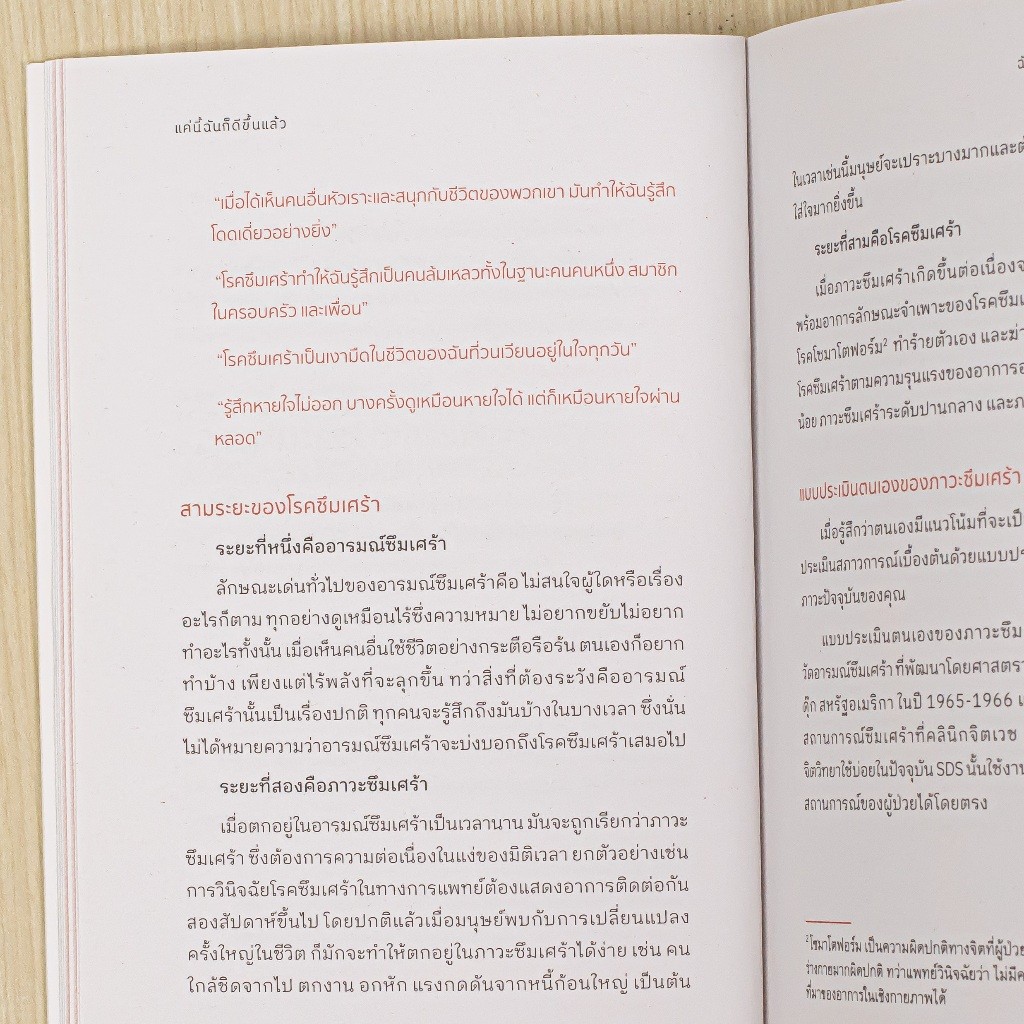 แค่นี้ฉันก็ดีขึ้นแล้ว
“เมื่อได้เห็นคนอื่นหัวเราะและสนุกกับชีวิตของพวกเขา มันทำให้ฉันรู้สึก
โดดเดี่ยวอย่างยิ่ง”
“โรคซึมเศร้าทำให้ฉันรู้สึกเป็นคนล้มเหลวทั้งในฐานะคนคนหนึ่ง สมาชิก
ในครอบครัว และเพื่อน”
“โรคซึมเศร้าเป็นเงามืดในชีวิตของฉันที่วนเวียนอยู่ในใจทุกวัน”
“รู้สึกหายใจไม่ออก บางครั้งดูเหมือนหายใจได้ แต่ก็เหมือนหายใจผ่าน
หลอด”
สามระยะของโรคซึมเศร้า
ระยะที่หนึ่งคืออารมณ์ซึมเศร้า
ลักษณะเด่นทั่วไปของอารมณ์ซึมเศร้าคือ ไม่สนใจผู้ใดหรือเรื่อง
อะไรก็ตาม ทุกอย่างดูเหมือนไร้ซึ่งความหมาย ไม่อยากขยับไม่อยาก
ทำอะไรทั้งนั้น เมื่อเห็นคนอื่นใช้ชีวิตอย่างกระตือรือร้น ตนเองก็อยาก
ทำบ้าง เพียงแต่ไร้พลังที่จะลุกขึ้น ทว่าสิ่งที่ต้องระวังคืออารมณ์
ซึมเศร้านั้นเป็นเรื่องปกติ ทุกคนจะรู้สึกถึงมันบ้างในบางเวลา ซึ่งนั่น
ไม่ได้หมายความว่าอารมณ์ซึมเศร้าจะบ่งบอกถึงโรคซึมเศร้าเสมอไป
ระยะที่สองคือภาวะซึมเศร้า
เมื่อตกอยู่ในอารมณ์ซึมเศร้าเป็นเวลานาน มันจะถูกเรียกว่าภาวะ
ซึมเศร้า ซึ่งต้องการความต่อเนื่องในแง่ของมิติเวลา ยกตัวอย่างเช่น
การวินิจฉัยโรคซึมเศร้าในทางการแพทย์ต้องแสดงอาการติดต่อกัน
สองสัปดาห์ขึ้นไป โดยปกติแล้วเมื่อมนุษย์พบกับการเปลี่ยนแปลง
ครั้งใหญ่ในชีวิต ก็มักจะทำให้ตกอยู่ในภาวะซึมเศร้าได้ง่าย เช่น คน
ใกล้ชิดจากไป ตกงาน อกหัก แรงกดดันจากหนี้ก้อนใหญ่ เป็นต้น
ในเวลาเช่นนี้มนุษย์จะเปราะบางมากและ
ใส่ใจมากยิ่งขึ้น
ระยะที่สามคือโรคซึมเศร้า
เมื่อภาวะซึมเศร้าเกิดขึ้นต่อเนื่อง
พร้อมอาการลักษณะจำเพาะของโรคซึม
โรคโซมาโตฟอร์ม² ทำร้ายตัวเอง และ
โรคซึมเศร้าตามความรุนแรงของอาการ
น้อย ภาวะซึมเศร้าระดับปานกลาง และ
แบบประเมินตนเองของภาวะซึมเศร้า
เมื่อรู้สึกว่าตนเองมีแนวโน้มที่จะเป็
ประเมินสภาวการณ์เบื้องต้นด้วยแบบ
ภาวะปัจจุบันของคุณ
แบบประเมินตนเองของภาวะซึม
วัดอารมณ์ซึมเศร้า ที่พัฒนาโดยศาสตรา
ดุ๊ก สหรัฐอเมริกา ในปี 1965-1966
สถานการณ์ซึมเศร้าที่คลินิกจิตเวช
จิตวิทยาใช้บ่อยในปัจจุบัน SDS นั้นใช้งาน
สถานการณ์ของผู้ป่วยได้โดยตรง
²โซมาโตฟอร์ม เป็นความผิดปกติทางจิตที่ผู้ป่วย
ร่างกายมากผิดปกติ ทว่าแพทย์วินิจฉัยว่า ไม่มี
ที่มาของอาการในเชิงกายภาพได้